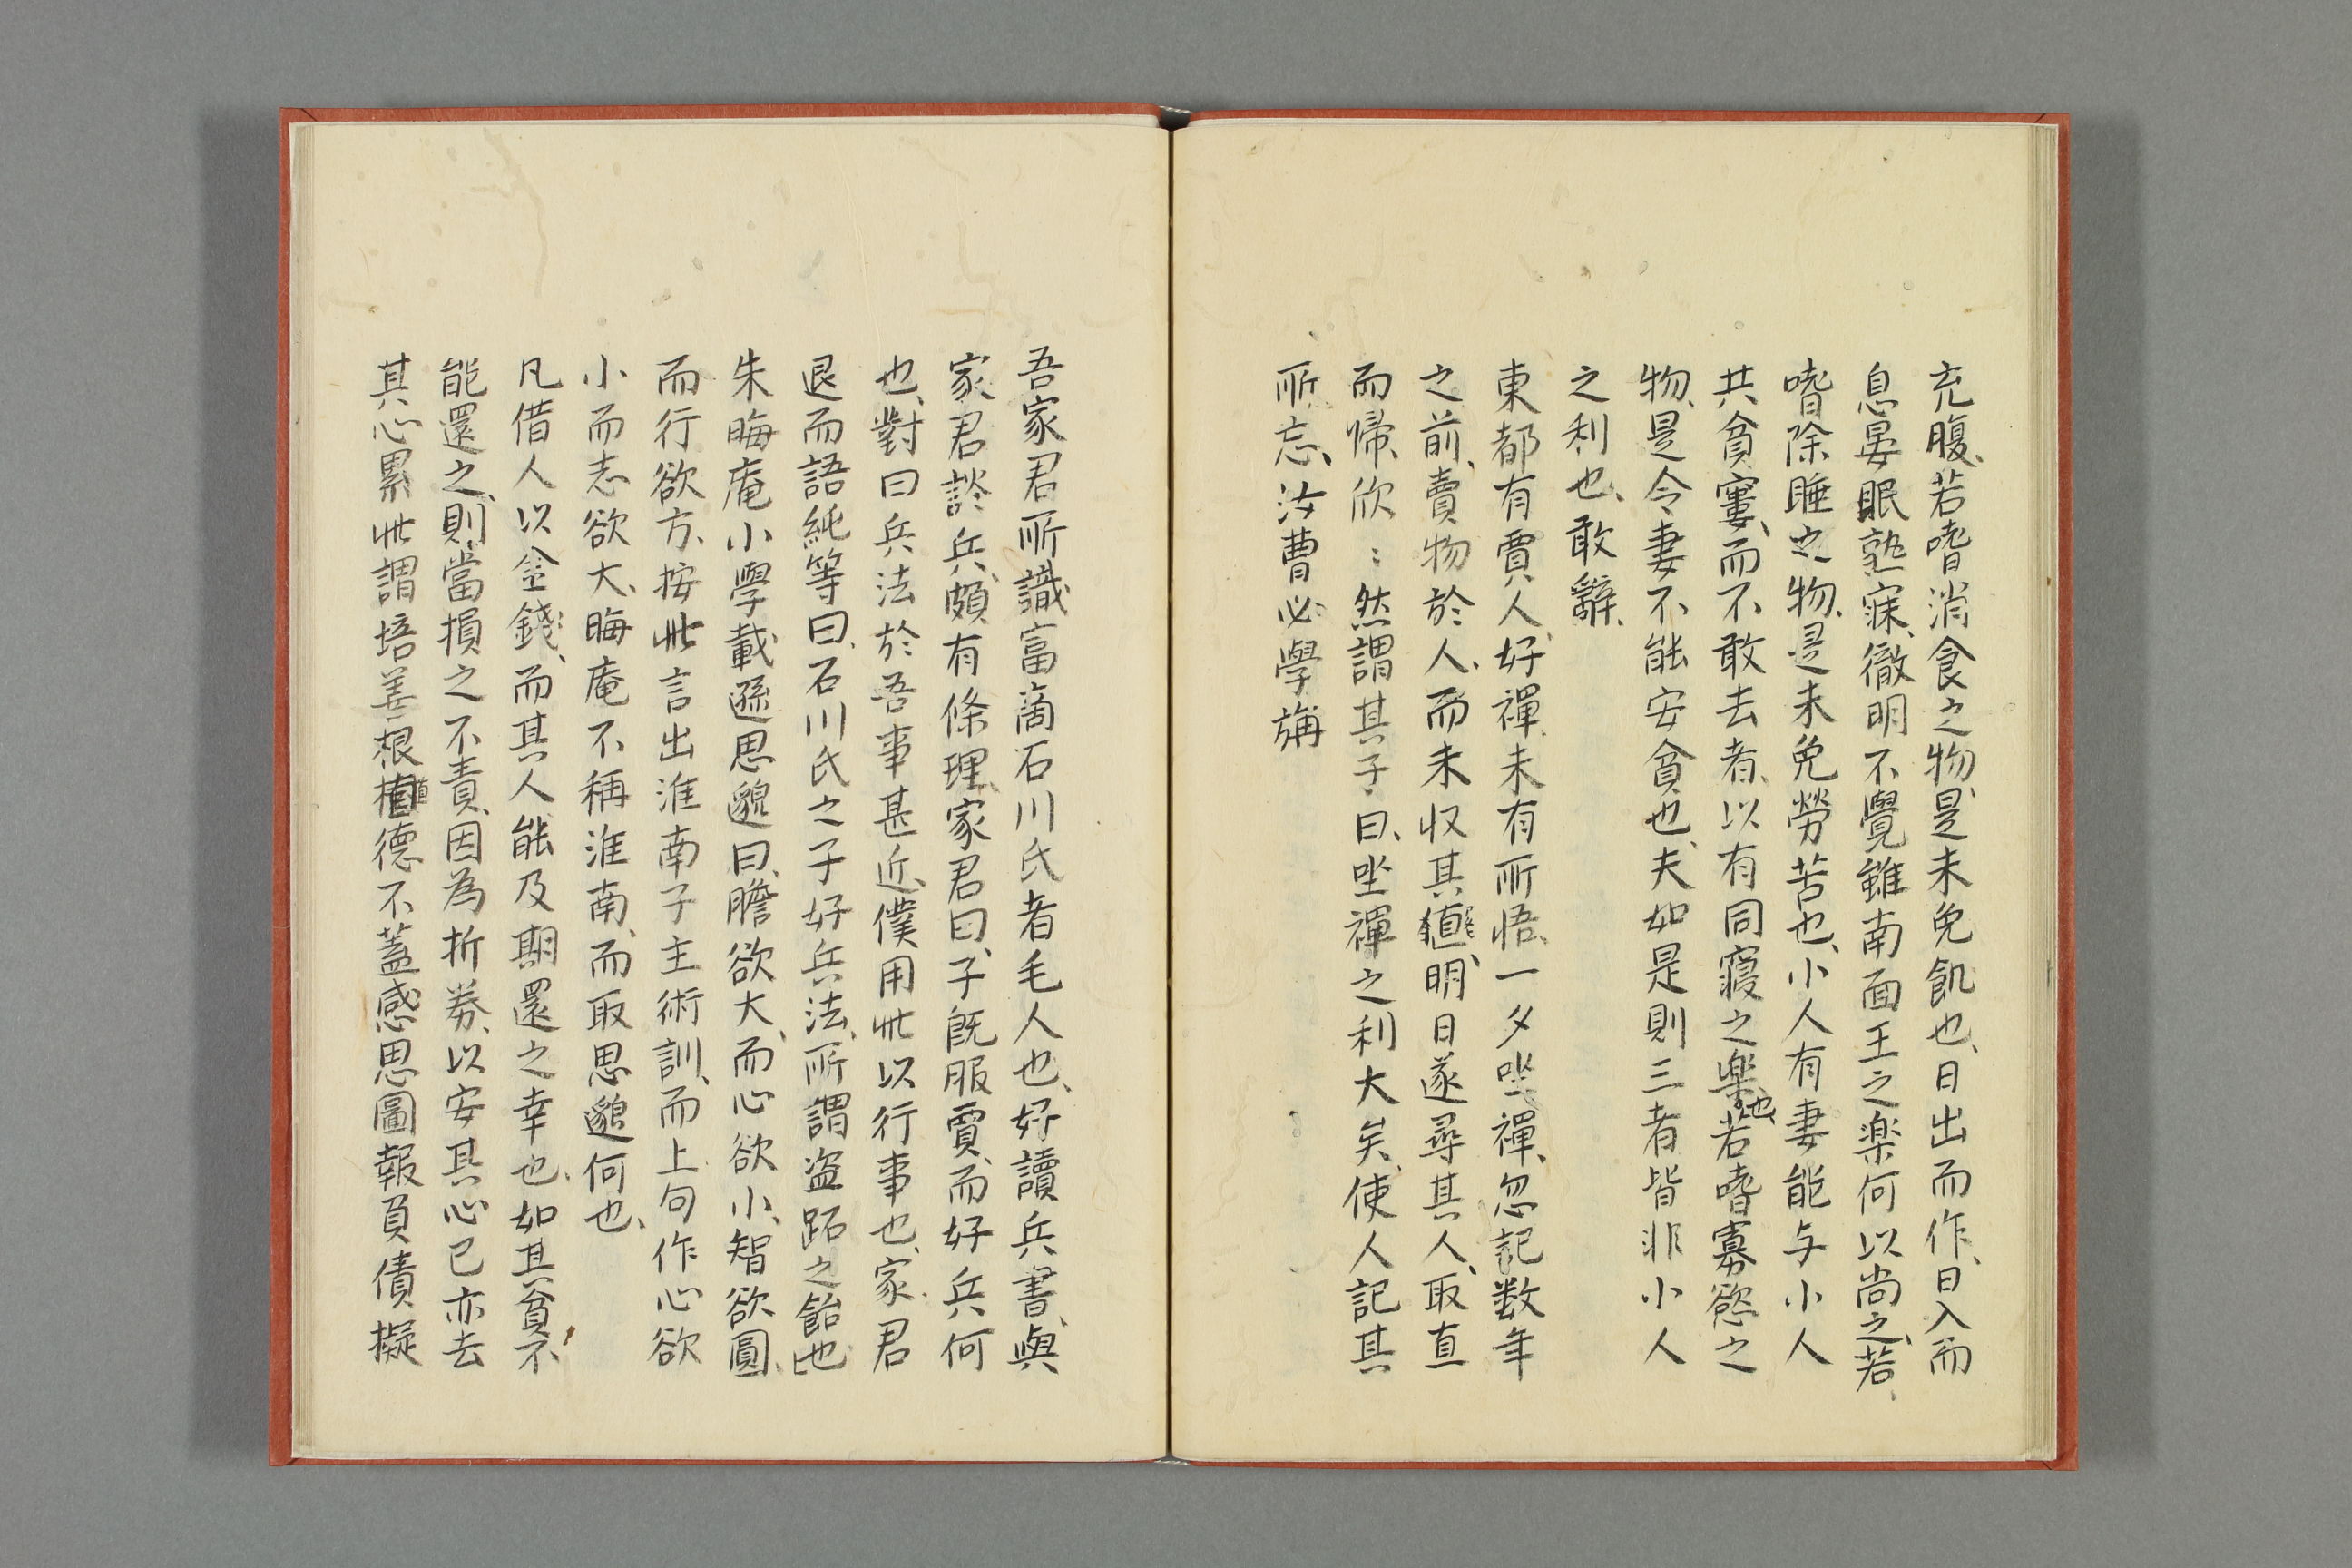 充腹、若嗜消食之物、是未免飢也、日出而作、日入而
息晏眠熟寐、徹明不覺雖南面王之楽何以尚之、若、
嗜除睡之物、是未免勞苦也、小人有妻能与小人
共貧窶、而不敢去者、以有同寢之楽也、若嗜寡慾之
物、是令妻不能安貧也、夫如是則三者皆非小人
之利也、敢辭、
東都有賈人、好禪、未有所悟、一夕坐禪、忽記数年
之前、賣物於人、而未収其値、明日遂尋其人、取直
而帰、欣〻然謂其子曰、坐禪之利大矣、使人記其
所忘、汝曹必學旃
吾家君所識富商石川氏者毛人也、好讀兵書、與
家君談兵、頗有條理、家君曰、子既服賈、而好兵何
也、對曰兵法於吾事甚近、僕用此以行事也、家君
退而語純等曰、石川氏之子好兵法、所謂盗跖之飴也
朱晦庵小學載遜思邈曰、膽欲大、而心欲小、智欲圓、
而行欲方、按此言出淮南子主術訓、而上句作心欲
小而志欲大、晦庵不稱淮南、而取思邈何也、
凡借人以金錢、而其人能及期還之幸也、如其貧不
能還之、則當損之不責、因為折券、以安其心已亦去
其心累此謂培善根植德不蓋感思圖報負債擬